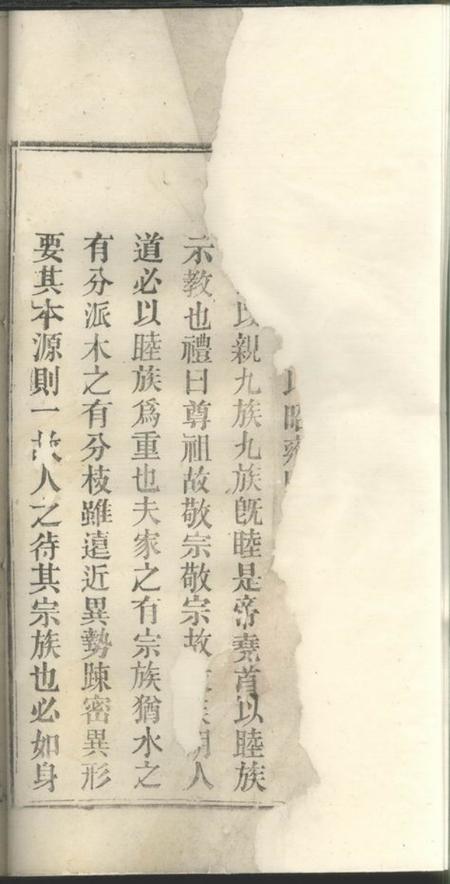 昭
以親九族九族既睦是帝堯首以睦族
示教也禮曰尊祖故敬宗敬宗故族明人
道必以睦族爲重也夫家之有宗族猶水之
有分派木之有分枝雖遠近異勢踈密異形
要其本源則一故人之待其宗族也必如身